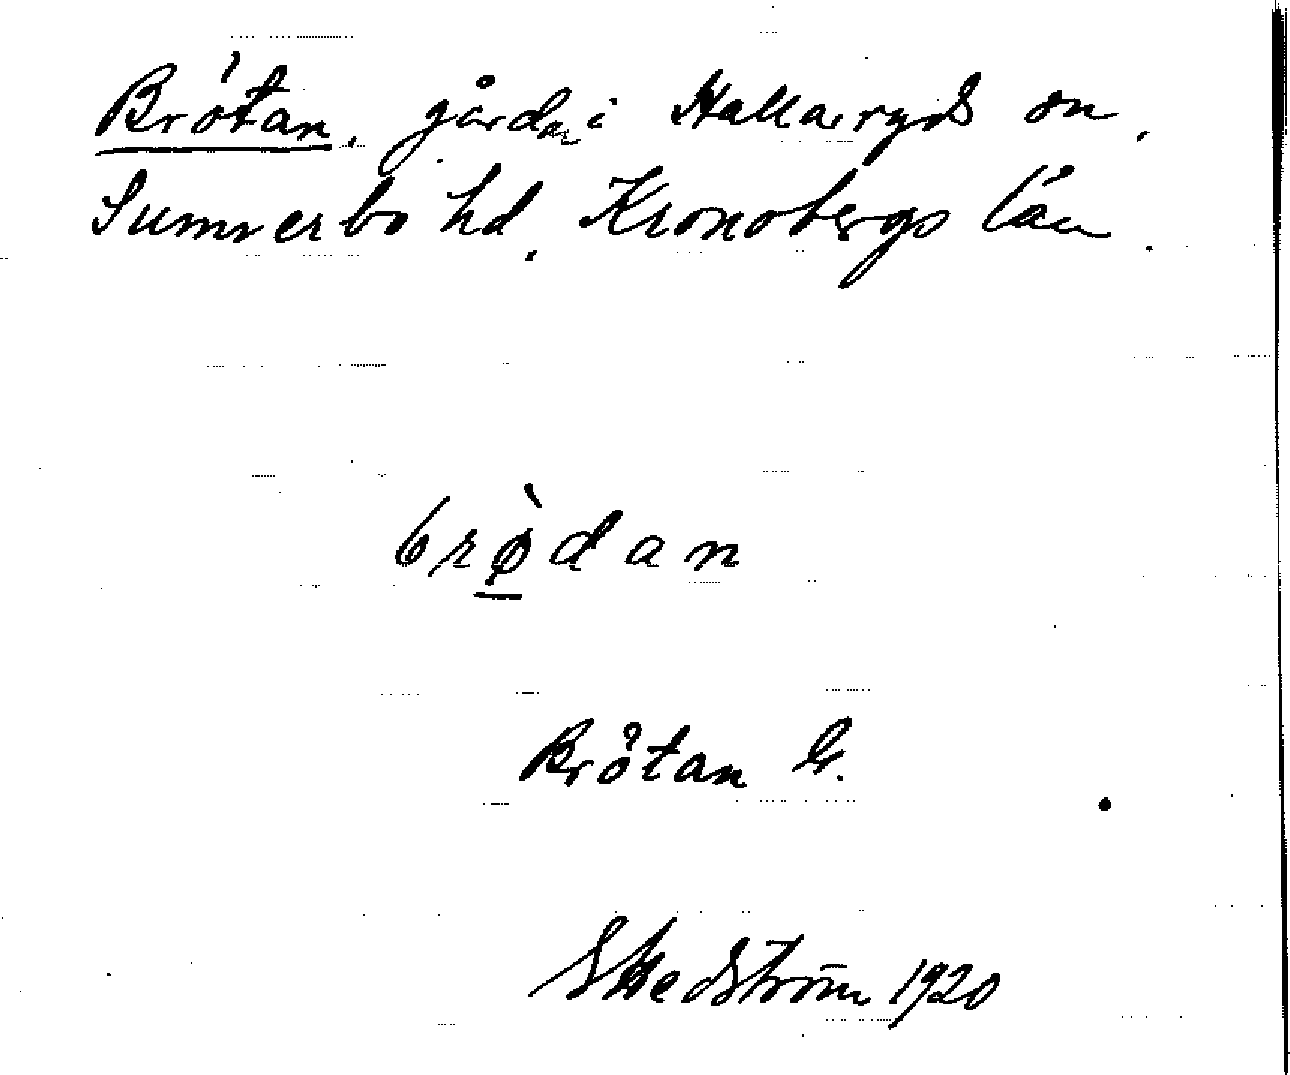 Brötan, gårdar i Hallaryds sn,
Sunnerbo hd, Kronobergs län.
brø̀dan
Brötan Gr.
S Hedström 1920